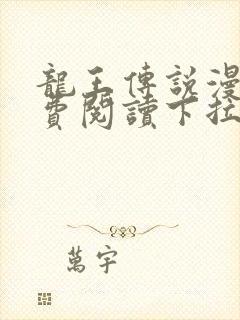 龍王傳說漫
費閱讀下拉
萬宇